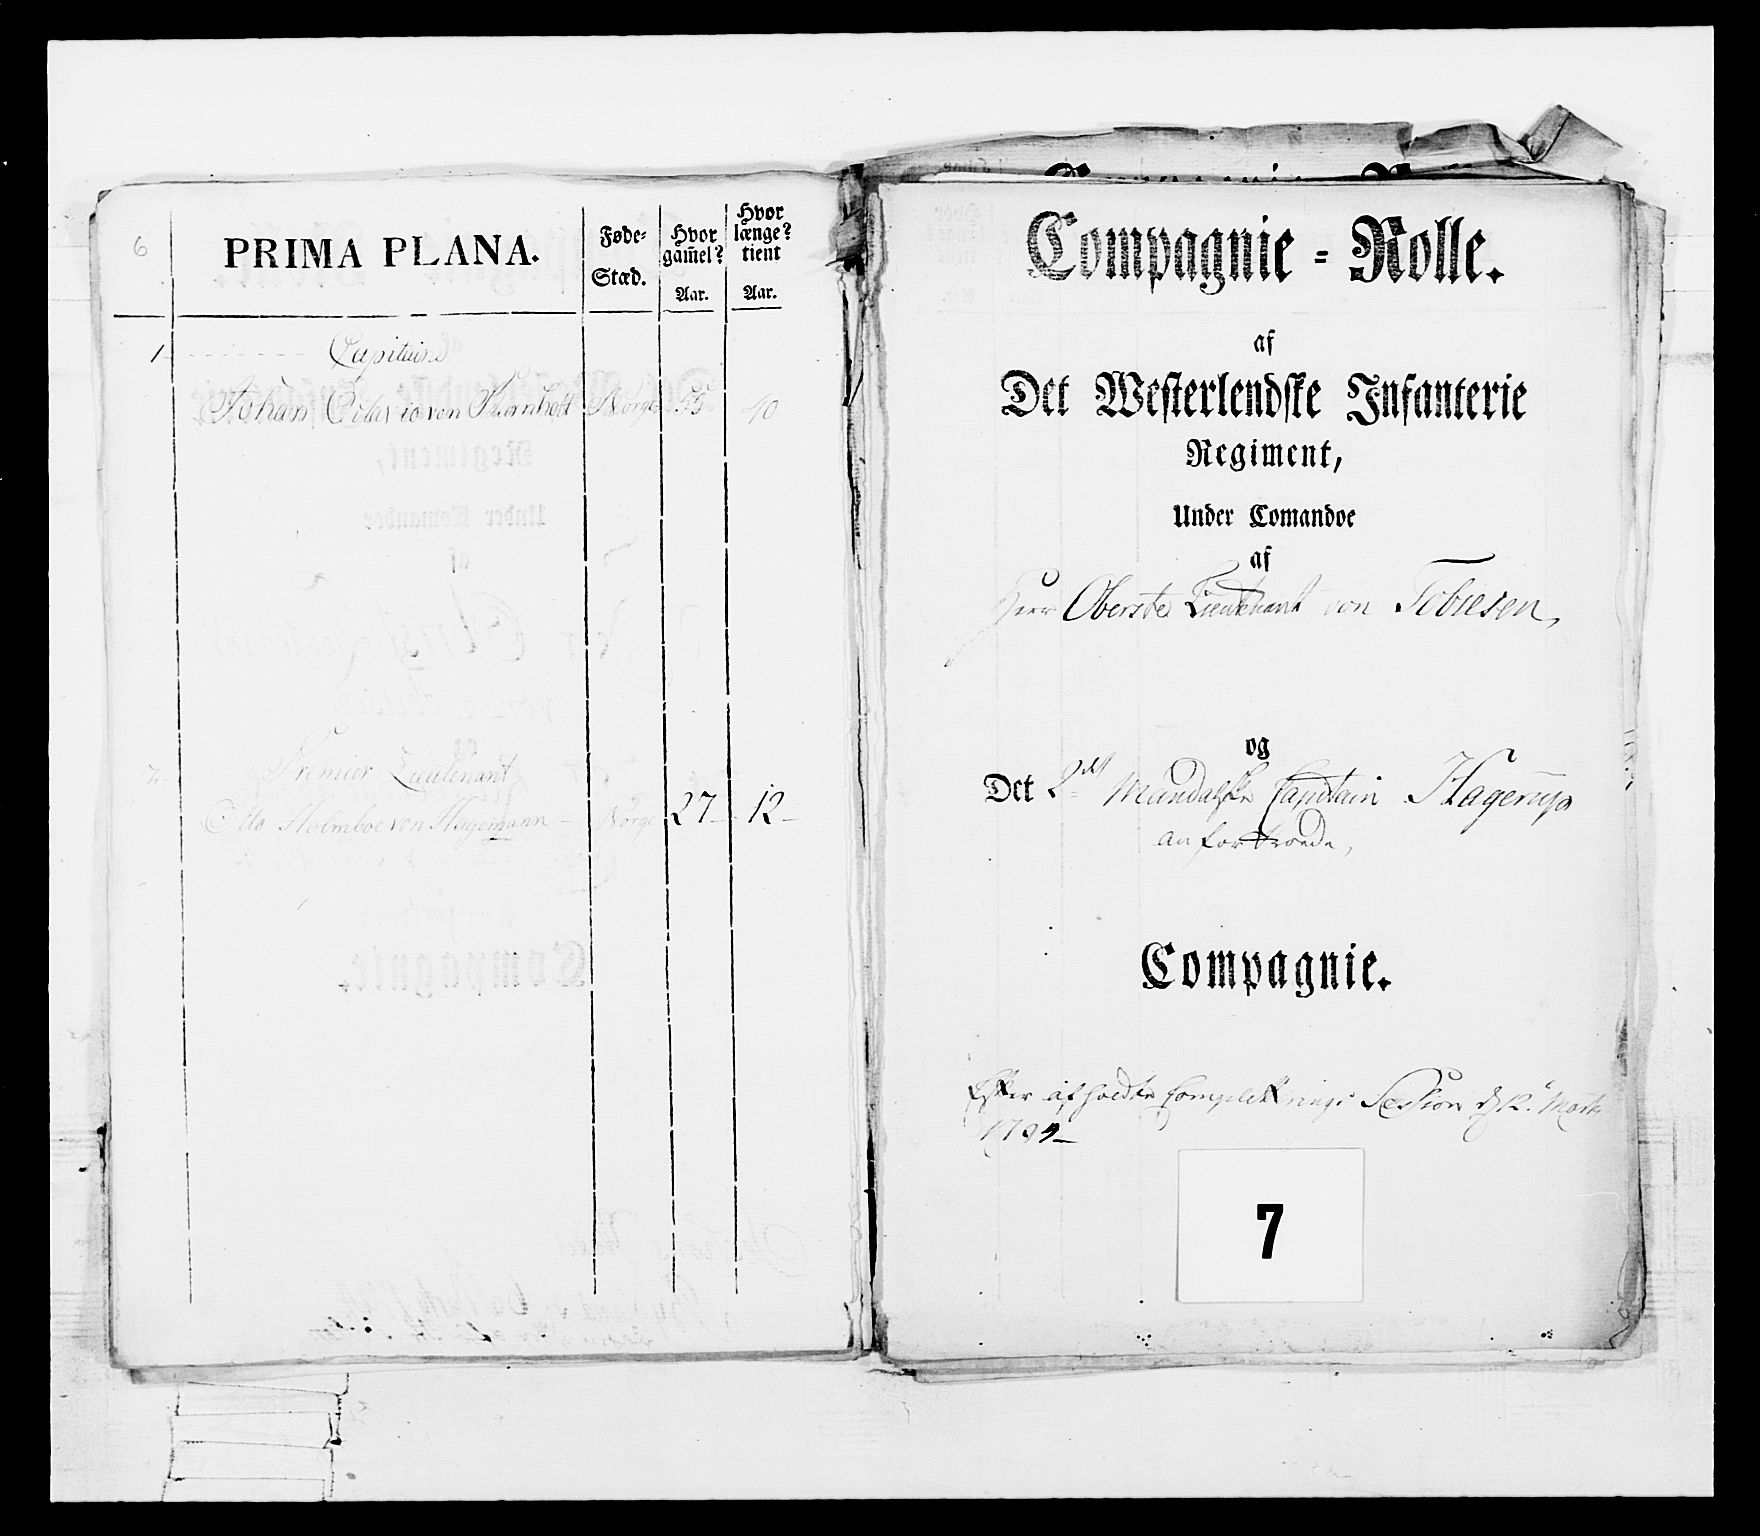 6
PRIMA PLANA.
Føde-
Stæd.
Hvor
gam̅el?
Aar.
Hvor
længe?
tient
Aar.
1 Capitain
Johan Octavio von Norge 55 40
2 Premier Lieutenant
Otto Holmboe von Hagemann Norge 27 12
Compagnie-Rolle.
af
Det Westerlendske Infanterie
Regiment,
Under Comandoe
af
Herr Oberste Lieutenant von Tobiesen,
og
Det 2det Mandalske Capitain Hagerup
anfortroede,
Compagnie.
Efter afholdte Completterings Session d 12te
7